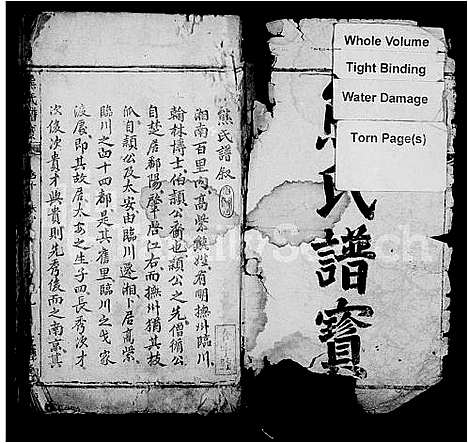 Whole Volume
Tight Binding
Water Damage
Torn Page(s)
氏譜寶
熊氏譜叙
湘南百里內高紫熊姓有明撫州臨川
翰林博士伯頴公裔也頴公之先僧脩公
自楚居鄱陽肇啓江右而撫州猶其枝
爪自頴公及太安由臨川遷湘卜居高紫
臨川之四十四都是其舊里臨川之戈家
渡屬即其故居太安之生子四長秀次才
次俊次貴才與貴則先秀後而之南京其